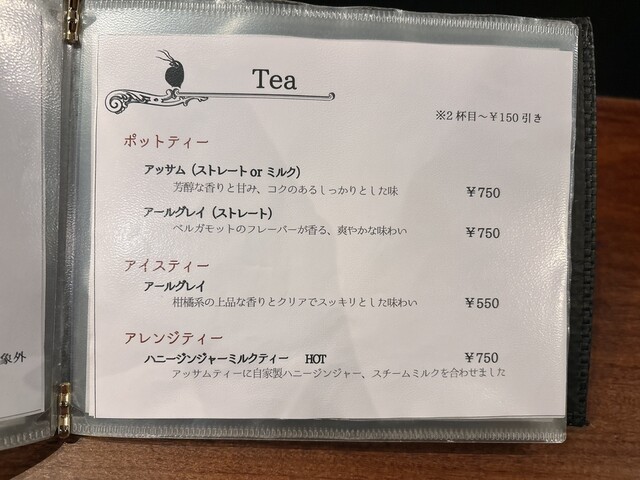 Tea
※2杯目～￥150引き
ポットティー
アッサム（ストレート or ミルク）
芳醇な香りと甘み、コクのあるしっかりとした味 ￥750
アールグレイ（ストレート）
ベルガモットのフレーバーが香る、爽やかな味わい ￥750
アイスティー
アールグレイ
柑橘系の上品な香りとクリアでスッキリとした味わい ￥550
アレンジティー
ハニージンジャーミルクティー HOT ￥750
アッサムティーに自家製ハニージンジャー、スチームミルクを合わせました
象外